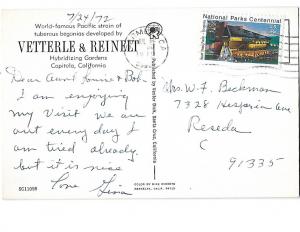 7/24/72
World-famous Pacific strain of
tuberous begonias developed by
VETTERLE & REINELT
Hybridizing Gardens
Capitola, California
Dear Aunt Anne & Bob,
I am enjoying
my visit we are
out every day I
am tired already.
but it is nice
Love Gina
SC11098
COLOR BY MIKE ROBERTS
BERKELEY, CALIF. 94710
National Parks Centennial
Mrs. W. F. Beckman
7328 Hesperia Ave
Reseda
C
91335